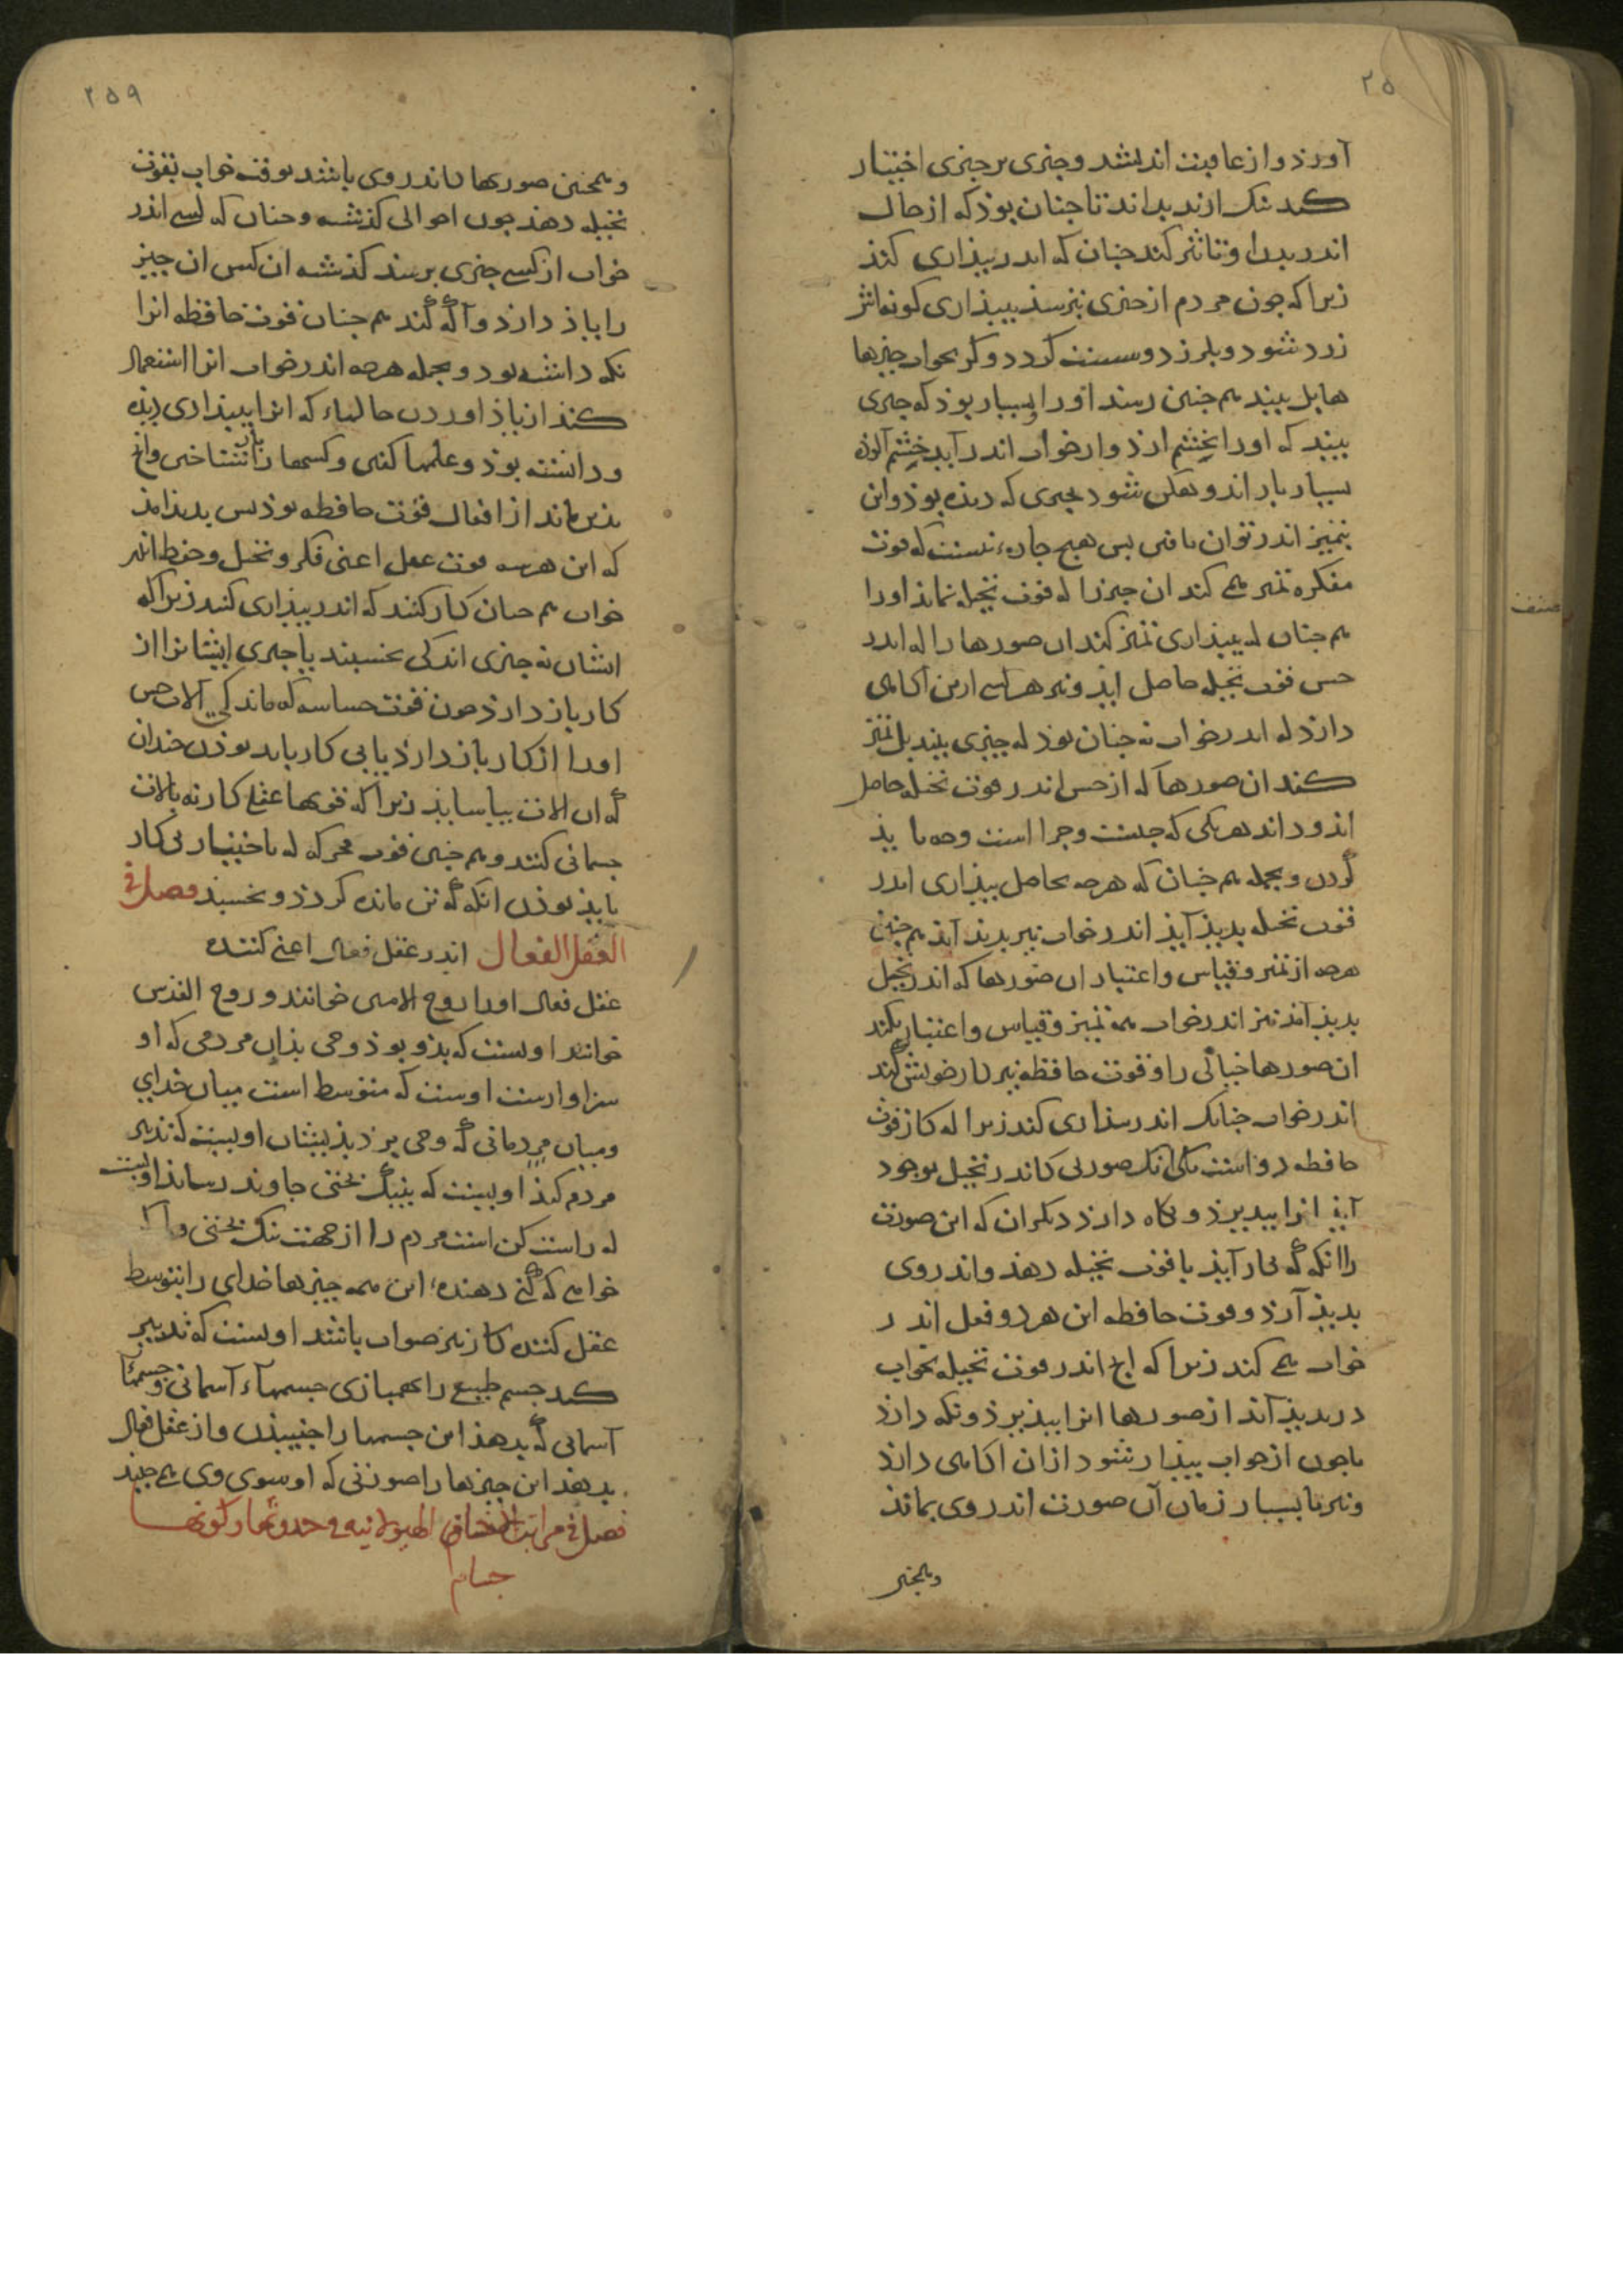 ٢٥
آورذ و از عاقبت اندیشد و چیزی بر چیزی اختیار
کند نیک از ند بداند تا چنان بوذ که از حال
اندر بدن او تاثیر کند چنان که اندر بیذاری کند
زیرا که چون مردم از چیزی بترسذ ببیذاری کونه اش
زرد شود و بلرزد و سست گردد و گر بخواب چیزها
هایل بیند هم چنین رسد او را و بسیار بوذ که چیزی
بیند که او را بخشم ارذ و از خواب اندر آید خشم آلوذه
بسیار بار اندوهگن شود بچیزی که دیذه بوذ و این
بتمیز اندر توان یافتن پس هیچ چاره نیست که قوت
مفکره تمیز همی کند ان چیز را که قوت تخیله نماید او را
هم چنان که ببیذاری تمیز کند ان صورها را که اندر
حس قوت تخیله حاصل ایذ و نیز هر کسی ازین آگاهی
دارذ که اندر خواب نه چنان بوذ که چیزی بیند بل تمیز
کند ان صورها که از حس اندر قوت تخیله حاصل
اید و داند هر یکی که چیست و چرا است و چه باید
کردن و بجمله هم چنان که هرچه بحاصل ببیذاری اندر
قوت تخیله بدید آیذ اندر خواب نیز بدید آید هم چنین
هرچه از تمیز و قیاس و اعتبار ان صورها که اندر تخیل
بدید آید نیز اندر خواب همه تمیز و قیاس و اعتبار بکند
ان صورها خیالی را و قوت حافظه نیز کار خویش کند
اندر خواب چنانک اندر بیذاری کند زیرا که کار قوت
حافظه دو است یکی انک صورتی کاندر تخیل بوجود
آیذ انرا بپذیرذ و نگاه دارذ دیگر ان که این صورت
را انکه که بکار آیذ با قوت تخیله دهذ و اندر وی
بدید آرذ و قوت حافظه این هر دو فعل اندر
خواب همی کند زیرا که انچ اندر قوت تخیله بخواب
در بدید آید از صورها انرا بپذیرذ و نکه دارذ
تا چون از خواب بیذار شود از ان اکاهی دارذ
و نیز تا بسیار زمان آن صورت اندر وی بمانذ
وهمچنین
٢٥٩
و همچنین صورها کاندر وی باشد بوقت خواب بقوت
تخیله دهذ چون احوالی گذشته و چنان که کسی اندر
خواب از کسی چیزی پرسد گذشته ان کس ان چیز
را یاذ دارذ و آگه کند هم چنان قوت حافظه انرا
نکه داشته بود و بجمله هرچه اندر خواب انرا استعمال
کند از یاذ اوردن حالهاء که انرا ببیذاری دیذه
و دانسته بوذ و علمها کلی و کسها را باز شناختن و انچ
بذین ماند از افعال قوت حافظه بوذ پس بدید آمذ
که این هر سه قوت عقل اعنی فکر و تخیل و حفظ اندر
خواب هم چنان کار کنند که اندر بیذاری کنند زیرا که
ایشان نه چیزی اند کی بخسبند یا چیزی ایشانرا از
کار باز دارذ چون قوت حساسه که ماندگی آلات حس
او را از کار باز دارذ یا بی کار باید بوذن چندان
که ان الات بیاسایذ زیرا که قوتها عقل کار نه بآلات
جسمانی کنند و هم چنین قوت محرکه که باختیار بی کار
بایذ بوذن انکه که تن مانده کردذ و بخسبذ فصل فی
العقل الفعال اندر عقل فعال اعنی کننده
عقل فعال او را روح الامین خوانند و روح القدس
خوانند اوست که بذو بوذ وحی بذان مردمی که او
سزاوارست اوست که متوسط است میان خدای
و میان مردمانی که وحی برذ بذیشان اوست که تدبیر
مردم کنذ اوست که بنیک بختی جاوند رساند اوست
که راست کن است مردم را از جهت نیک بختی و
خواهی که گنی دهنده این همه چیزها خدای را بتوسط
عقل کننده کار نیز صواب باشد اوست که تدبیر
کند جسم طبیعی را بهمبازی جسمهاء آسمانی و جسمهاء
آسمانی که بدهذ این جسمها را جنبیذن و از عقل فعال
بدهذ این چیزها را صورتی که او سوی وی همی جنبد
فصل فی مراتب الهیولانیه و حدوثها و کونها